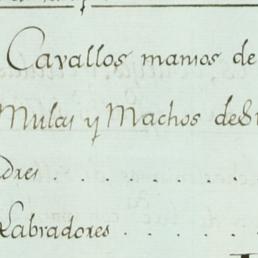 Cavallos mansos de
Mulas y Machos de
dres . . . . . .
Labradores . . . .